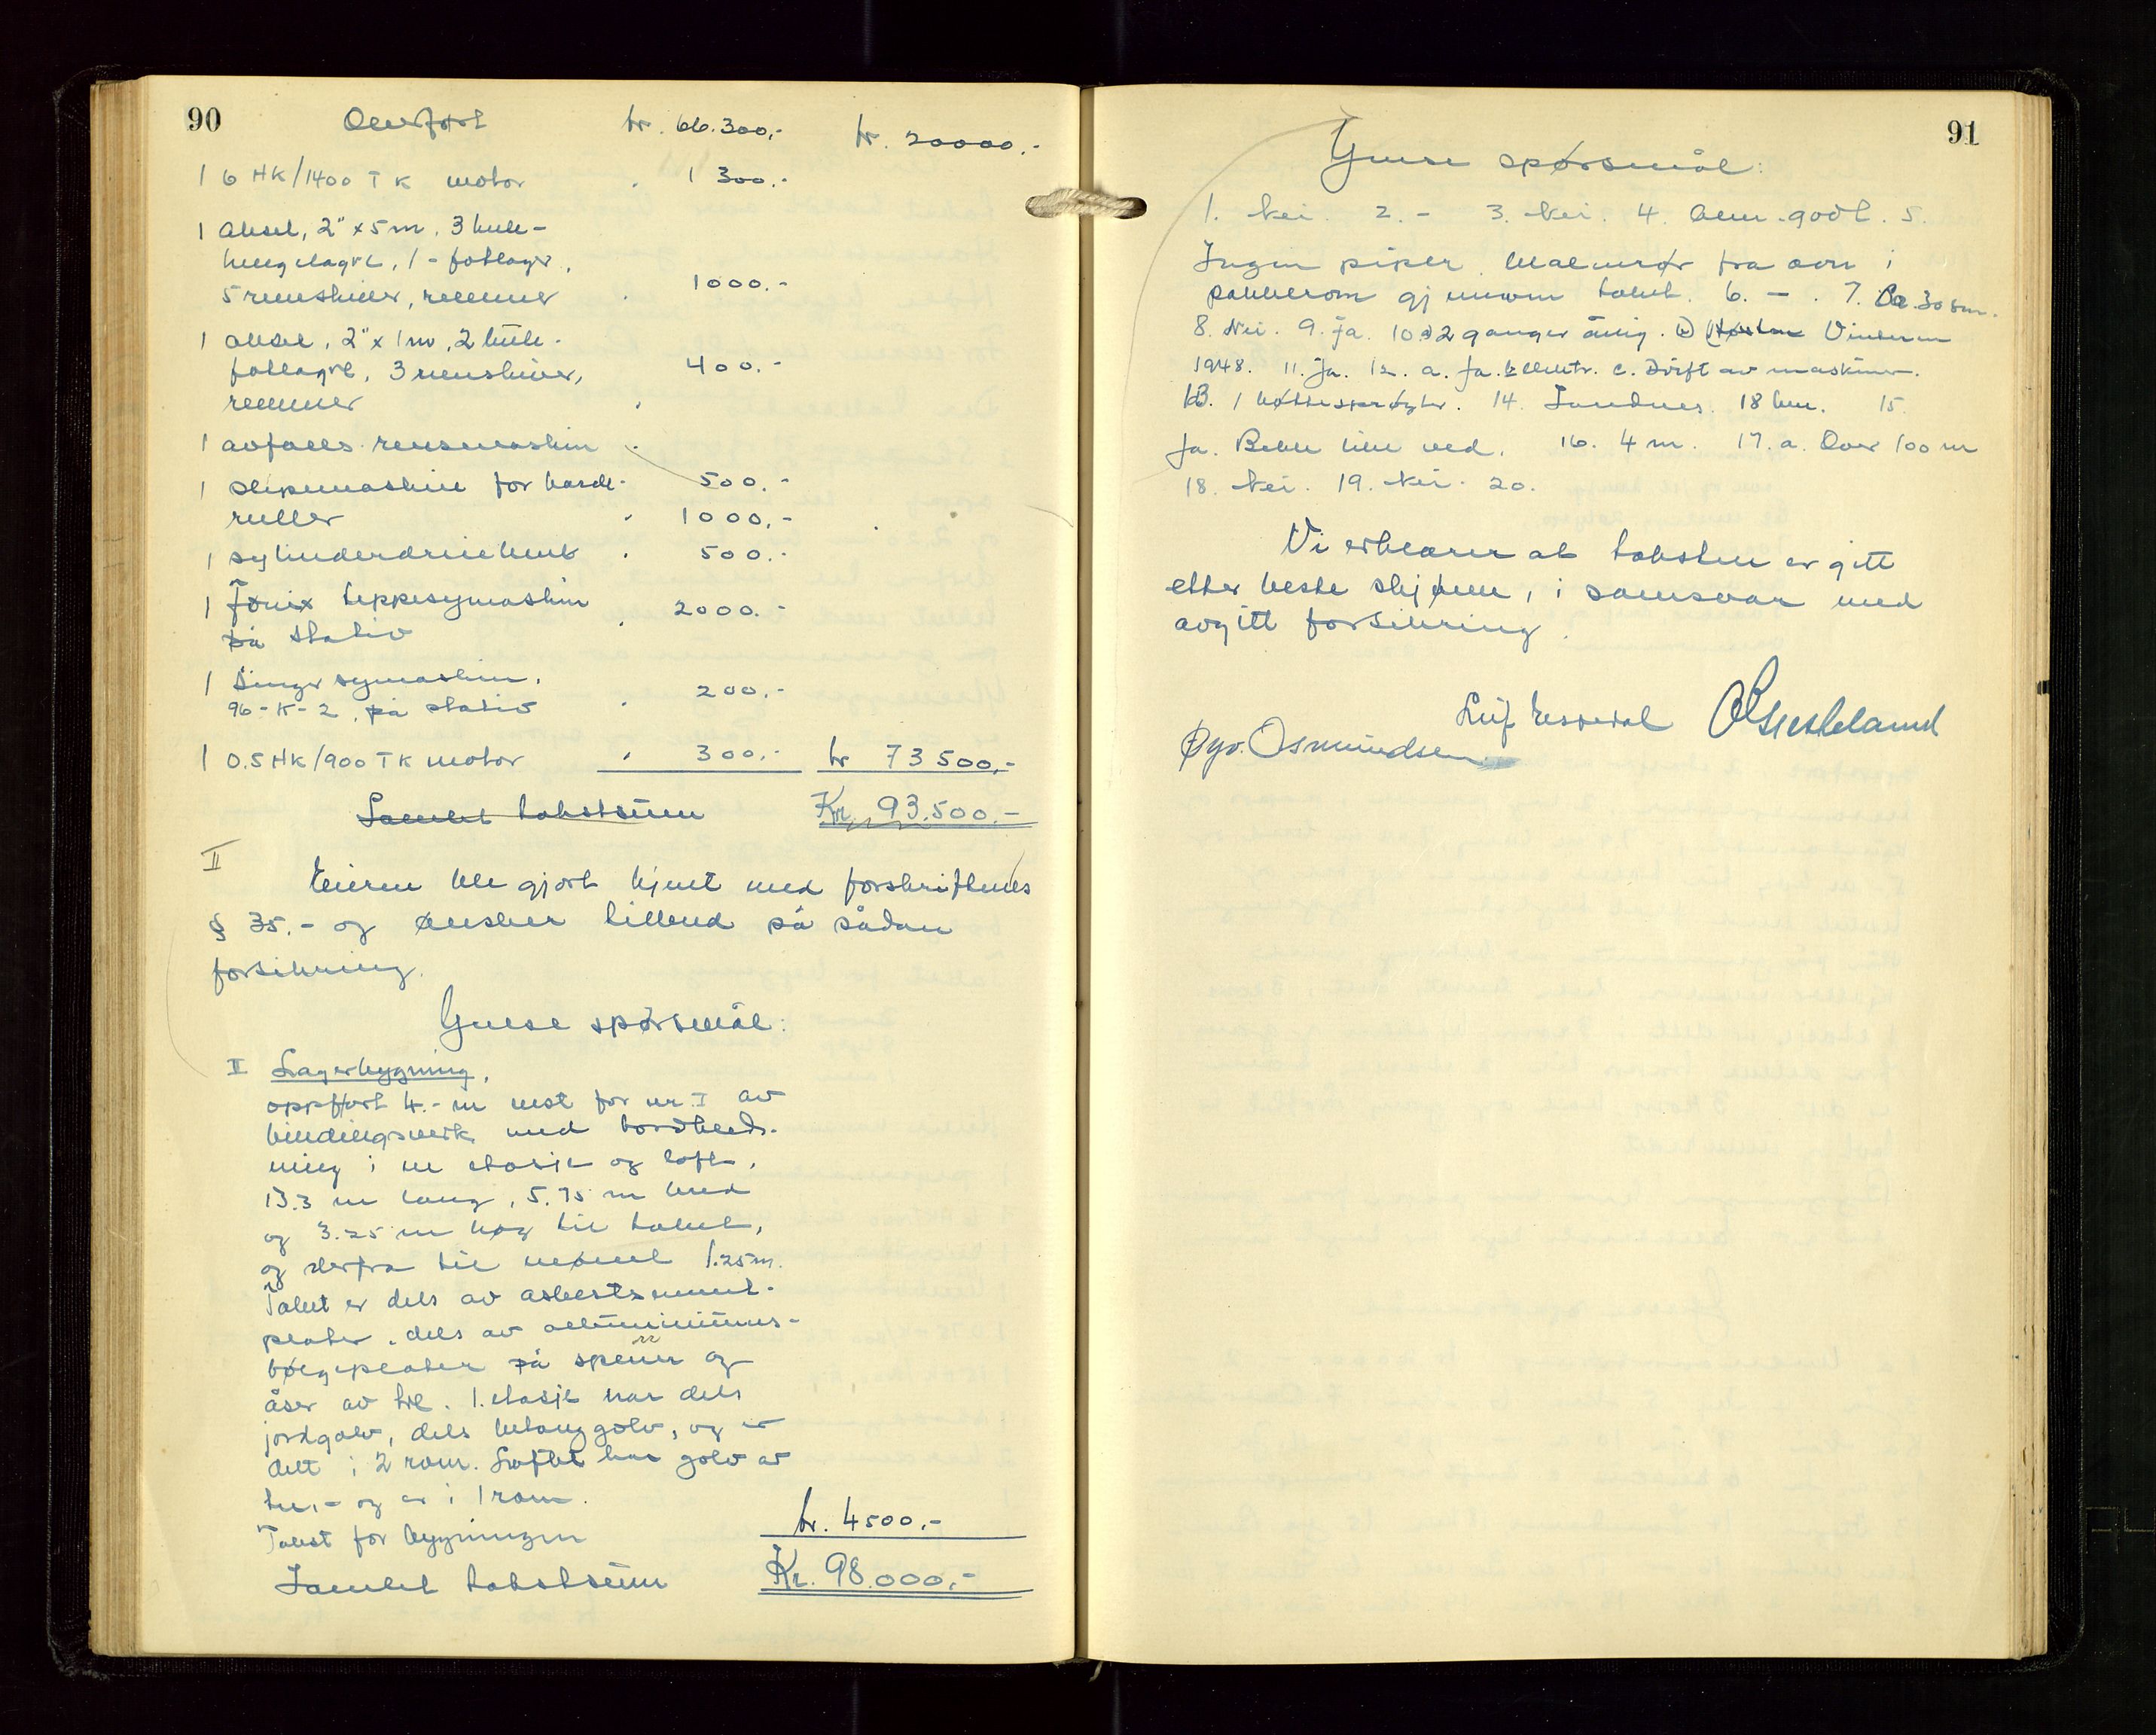 90
Overført kr. 66.300,- kr. 20000.-
1 6 HK/1400 T K motor " 1 300.-
1 aksel, 2" x 5 m. 3 kule-
hengelagre, 1 - fotlager,
5 remskiver, remmer " 1000.-
1 aksel, 2" x 1 m, 2 kule-
fotlagre, 3 remskiver, 400.-
remmer "
1 avfalls rensmaskin "
1 slipemaskin for karde- 500.-
ruller " 1000,-
1 sylinderdreiebenk " 500.-
1 Fønix teppesymaskin 2000.-
på stativ "
1 Singer symaskin, 200.-
96-K-2, på stativ "
1 0.5 HK/900 T K motor " 300.- kr 73500,-
Samlet takstsum Kr. 93.500.-
II
Eieren ble gjort kjent med forskriftenes
§ 35.- og ønsker tilbud på sådan
forsikring.
Gense spørsmål:
II Lagerbygning,
oppført 4.- m vest for nr. I av
bindingsverk med bordkled-
ning i en etasje og loft,
13.3 m lang, 5.75 m bred
og 3.25 m høg til taket,
og derfra til mønet 1.25 m.
Taket er dels av asbestsement-
plater, dels av aluminiums-
bølgeplater på sperrer og
åser av tre. 1. etasje har dels
jordgolv, dels betonggolv, og er
delt i 2 rom. Loftet har golv av
tre,- og er i 1 rom.
Takst for bygningen kr. 4500,-
Samlet takstsum Kr. 98.000,-
91
Gense spørsmål:
1. Nei. 2. - 3. Nei. 4. Alm. godt. 5.
Ingen piper. Malmrør fra ovn i
pakkerom gjennom taket. 6. - . 7. Ca. 30 cm.
8. Nei. 9. Ja. 10 a 2 ganger årlig. b) Høsten Vinteren
1948. 11. Ja. 12. a. Ja. b elektr. c. Drift av maskiner.
13. 1 bøttesprøyter. 14. Sandnes. 18 km. 15.
Ja. Bekk like ved. 16. 4 m. 17. a. Over 100 m
18. Nei. 19. Nei. 20.
Vi erklærer at taksten er gitt
etter beste skjønn, i samsvar med
avgitt forsikring.
Leif Espedal
Øyv. Osmundsen